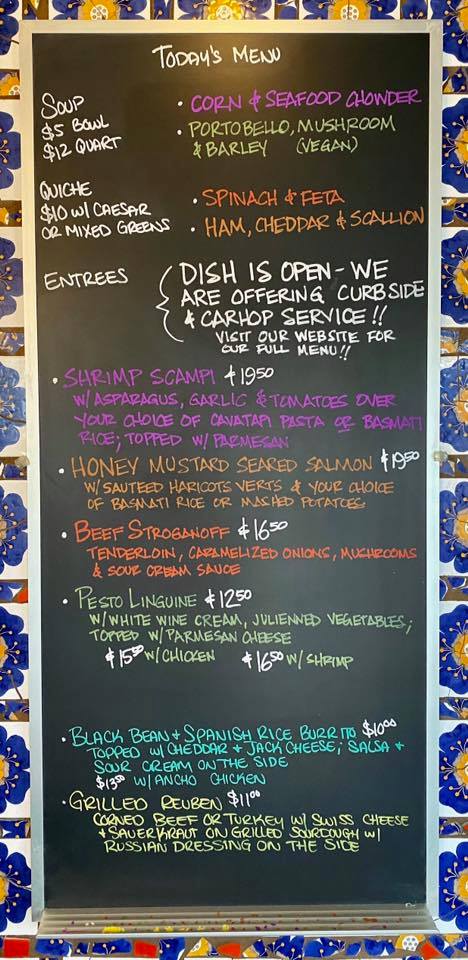 TODAY'S MENU
SOUP
$5 BOWL
$12 QUART
• CORN & SEAFOOD CHOWDER
• PORTOBELLO, MUSHROOM
& BARLEY (VEGAN)
QUICHE
$10 W/ CAESAR
OR MIXED GREENS
• SPINACH & FETA
• HAM, CHEDDAR & SCALLION
ENTREES
DISH IS OPEN - WE
ARE OFFERING CURBSIDE
& CARHOP SERVICE!!
VISIT OUR WEBSITE FOR
OUR FULL MENU!!
• SHRIMP SCAMPI $19.50
W/ ASPARAGUS, GARLIC & TOMATOES OVER
YOUR CHOICE OF CAVATAPI PASTA OR BASMATI
RICE; TOPPED W/ PARMESAN
• HONEY MUSTARD SEARED SALMON $19.50
W/ SAUTEED HARICOTS VERTS & YOUR CHOICE
OF BASMATI RICE OR MASHED POTATOES
• BEEF STROGANOFF $16.50
TENDERLOIN, CARAMELIZED ONIONS, MUSHROOMS
& SOUR CREAM SAUCE
• PESTO LINGUINE $12.50
W/ WHITE WINE CREAM, JULIENNED VEGETABLES;
TOPPED W/ PARMESAN CHEESE
$15.50 W/ CHICKEN $16.50 W/ SHRIMP
• BLACK BEAN & SPANISH RICE BURRITO $10.00
TOPPED W/ CHEDDAR & JACK CHEESE; SALSA &
SOUR CREAM ON THE SIDE
$13.50 W/ ANCHO CHICKEN
• GRILLED REUBEN $11.00
CORNED BEEF OR TURKEY W/ SWISS CHEESE
& SAUERKRAUT ON GRILLED SOURDOUGH W/
RUSSIAN DRESSING ON THE SIDE